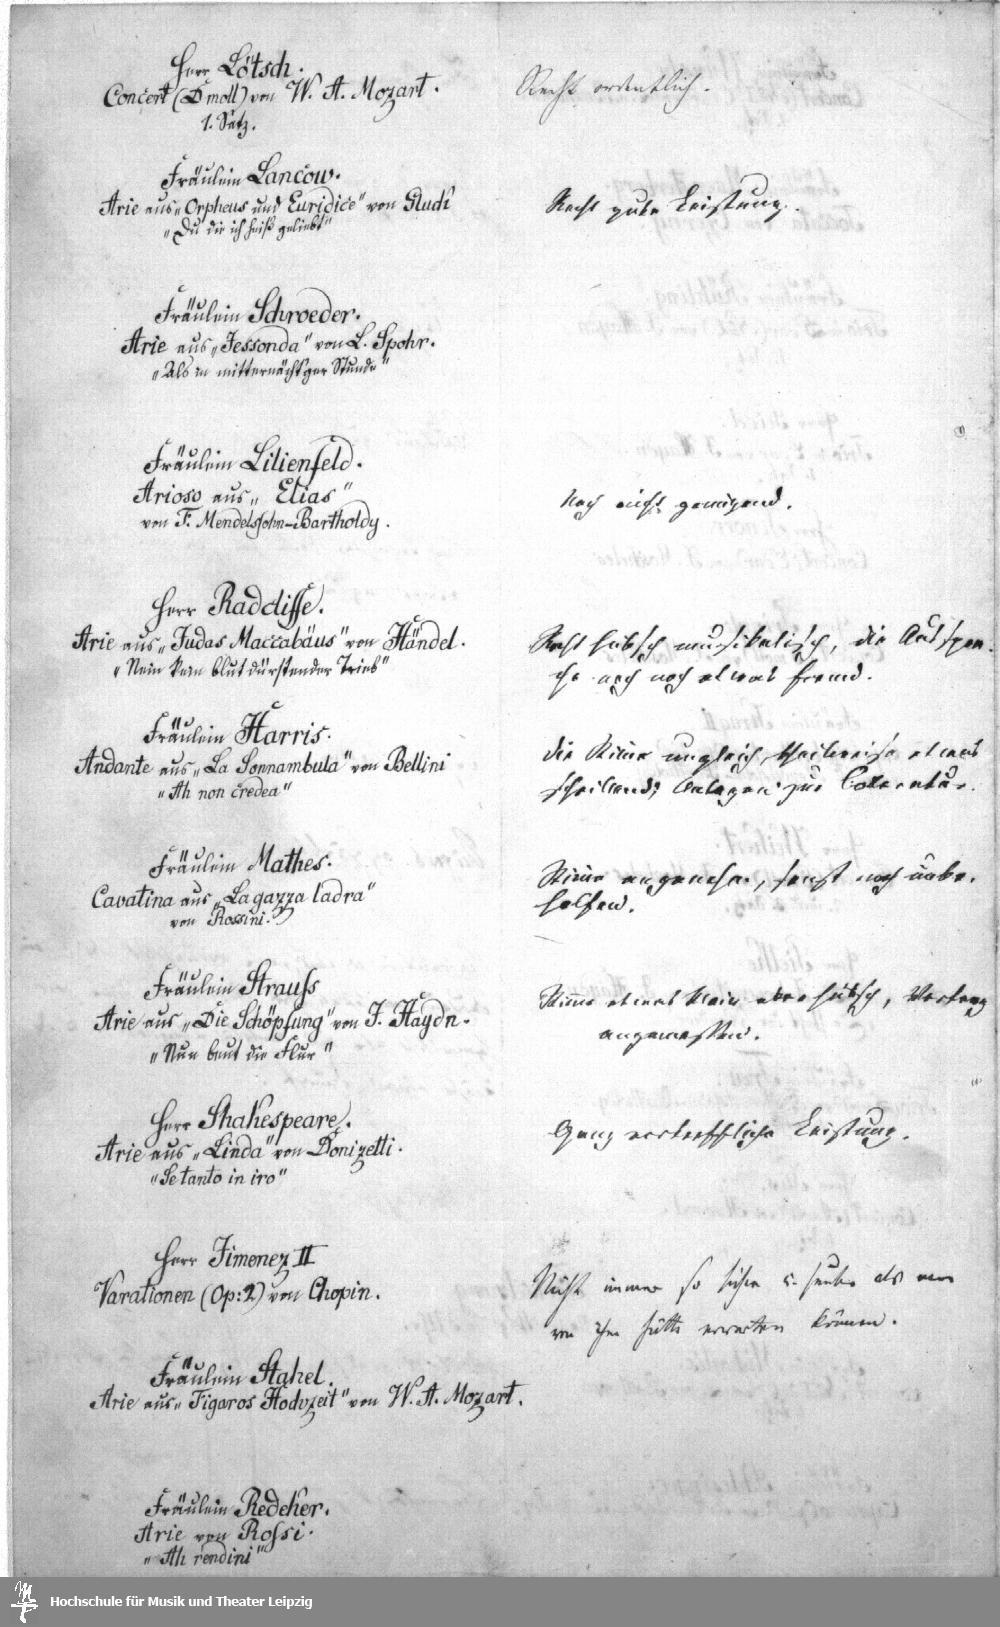 Herr Lötsch.
Concert (D moll) von W. A. Mozart.
1. Satz.
Recht ordentlich.
Fräulein Lancow.
Arie aus „Orpheus und Euridice" von Gluck
„Du die ich heiß geliebt"
Recht gute Leistung.
Fräulein Schroeder.
Arie aus „Jessonda" von L. Spohr.
„Als in mitternächt'ger Stunde"
Fräulein Lilienfeld.
Arioso aus „Elias"
von F. Mendelssohn-Bartholdy.
Noch nicht genügend.
Herr Radcliffe.
Arie aus „Judas Maccabäus" von Händel.
„Nein kein blutdürstender Trieb"
Recht hübsch musikalisch, dieAusspra-
che noch etwas fremd.
Fräulein Harris.
Andante aus „La Sonnambula" von Bellini
„Ah non credea"
Die Stimme ungleich, theilweise etwas
Anlagen zur Coloratur.
Fräulein Mathes.
Cavatina aus „La gazza ladra"
von Rossini.
Stimme angenehm, sonst noch unbe-
holfen.
Fräulein Strauss
Arie aus „Die Schöpfung" von J. Haydn.
„Nun beut die Flur"
Stimme etwas klein aber hübsch, Vortrag
angemessen.
Herr Shakespeare.
Arie aus „Linda" von Donizetti.
„Se tanto in iro"
Ganz vortreffliche Leistung.
Herr Jimenez II
Varationen (Op: 2) von Chopin.
Nicht immer so sicher u. sauber als man
von ihm hätte erwarten können.
Fräulein Stahel.
Arie aus „Figaros Hochzeit" von W. A. Mozart.
Fräulein Redeker.
Arie von Rossi.
„Ah rendimi"
Hochschule für Musik und Theater Leipzig